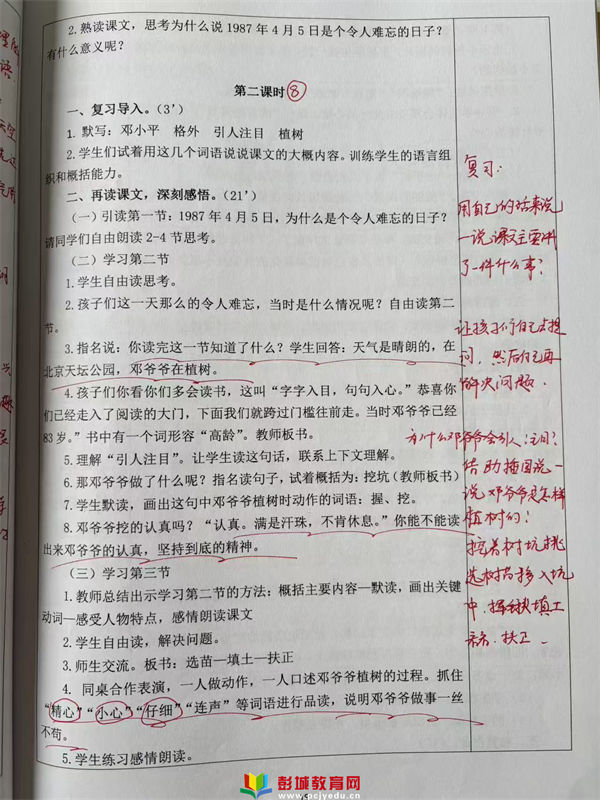 2.熟读课文，思考为什么说1987年4月5日是个令人难忘的日子？
有什么意义呢？
第二课时 ⑧
一、复习导入。（3’）
1.默写：邓小平 格外 引人注目 植树
2.学生们试着用这几个词语说说课文的大概内容。训练学生的语言组
织和概括能力。
二、再读课文，深刻感悟。（21’）
（一）引读第一节：1987年4月5日，为什么是个令人难忘的日子？
请同学们自由朗读2-4节思考。
（二）学习第二节
1.学生自由读思考。
2.孩子们这一天那么的令人难忘，当时是什么情况呢？自由读第二
节。
3.指名说：你读完这一节知道了什么？学生回答：天气是晴朗的，在
北京天坛公园，邓爷爷在植树。
4.孩子们你看你们多会读书，这叫“字字入目，句句入心。”恭喜你
们已经走入了阅读的大门，下面我们就跨过门槛往前走。当时邓爷爷已经
83岁。”书中有一个词形容“高龄”。教师板书。
5.理解“引人注目”。让学生读这句话，联系上下文理解。
6.那邓爷爷做了什么呢？指名读句子，试着概括为：挖坑（教师板书）
7.学生默读，画出这句中邓爷爷植树时动作的词语：握、挖。
8.邓爷爷挖的认真吗？“认真。满是汗珠，不肯休息。”你能不能读
出来邓爷爷的认真，坚持到底的精神。
（三）学习第三节
1.教师总结出示学习第二节的方法：概括主要内容—默读，画出关键
动词—感受人物特点，感情朗读课文
2.学生自由读，解决问题。
3.师生交流。板书：选苗—填土—扶正
4. 同桌合作表演，一人做动作，一人口述邓爷爷植树的过程。抓住
“精心”“小心”“仔细”“连声”等词语进行品读，说明邓爷爷做事一丝
不苟。
5.学生练习感情朗读。
复习：
用自己的话来说
一说课文主要讲
了一件什么事？
让孩子们自己去提
问，然后自己再
解决问题．
为什么邓爷爷会引人注目？
借助插图说一
说邓爷爷是怎样
植树的？
挖着树坑 挑
选树苗移入坑
中．挥锹填土
扶正．
彭城教育网
www.pcjyedu.cn